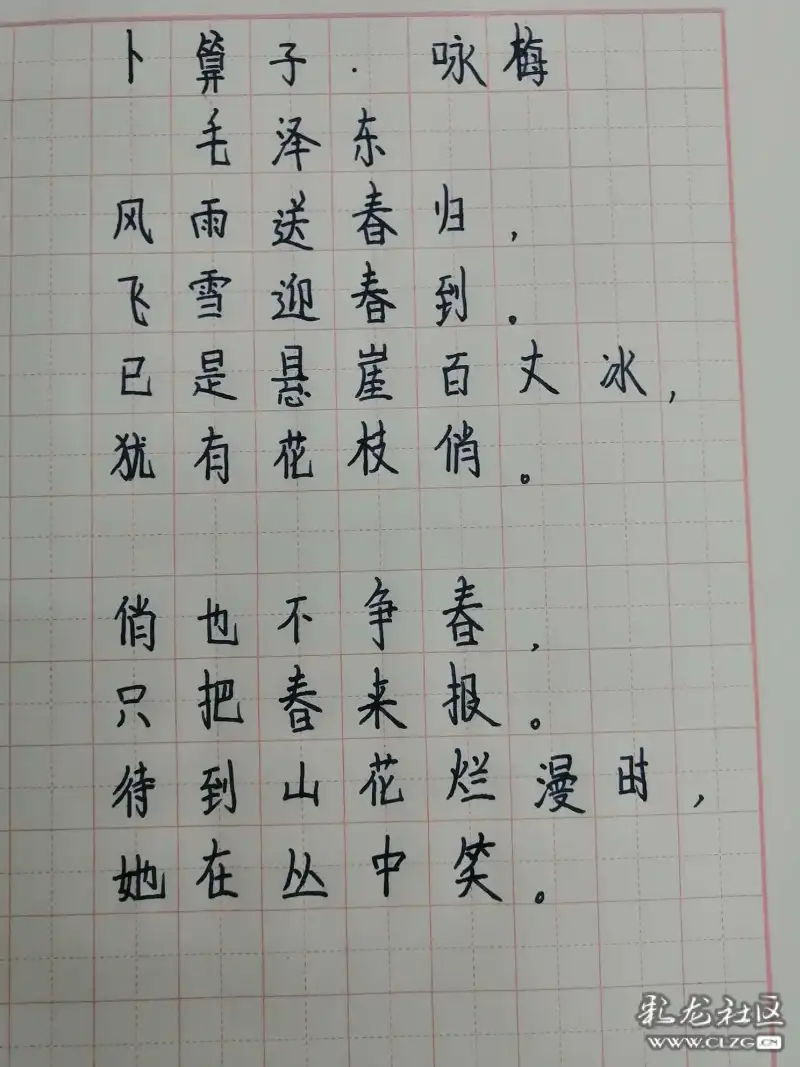 卜算子·咏梅
毛泽东
风雨送春归，
飞雪迎春到。
已是悬崖百丈冰，
犹有花枝俏。
俏也不争春，
只把春来报。
待到山花烂漫时，
她在丛中笑。
彩龙社区
WWW.CLZG.CN